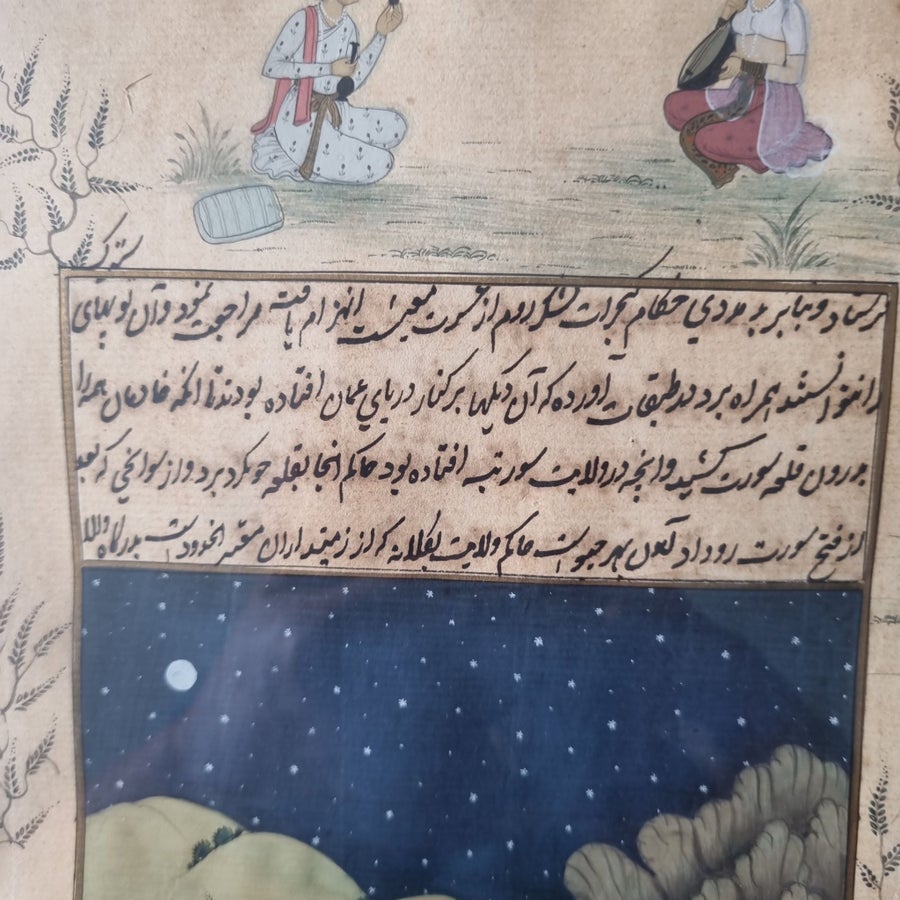 فرستاد و بنابر بی مردی حکام گجرات لشکر روم از عسرت معیشت انهزام یافته مراجعت نمود و آن توپهای
را نتوانستند همراه برد در طبقات آورده که آن دیگها بر کنار دریای عمان افتاده بودند تا آنکه خان
درون قلعه سورت کشید و آنچه در ولایت سورتهه افتاده بود حاکم انجا بقلعه جونکر برد و از سوانحی که بعد
از فتح سورت رو داد آوردن بهرجیو است حاکم ولایت بکلانه که از زمینداران معتبر انحدود است بدرگاه والا